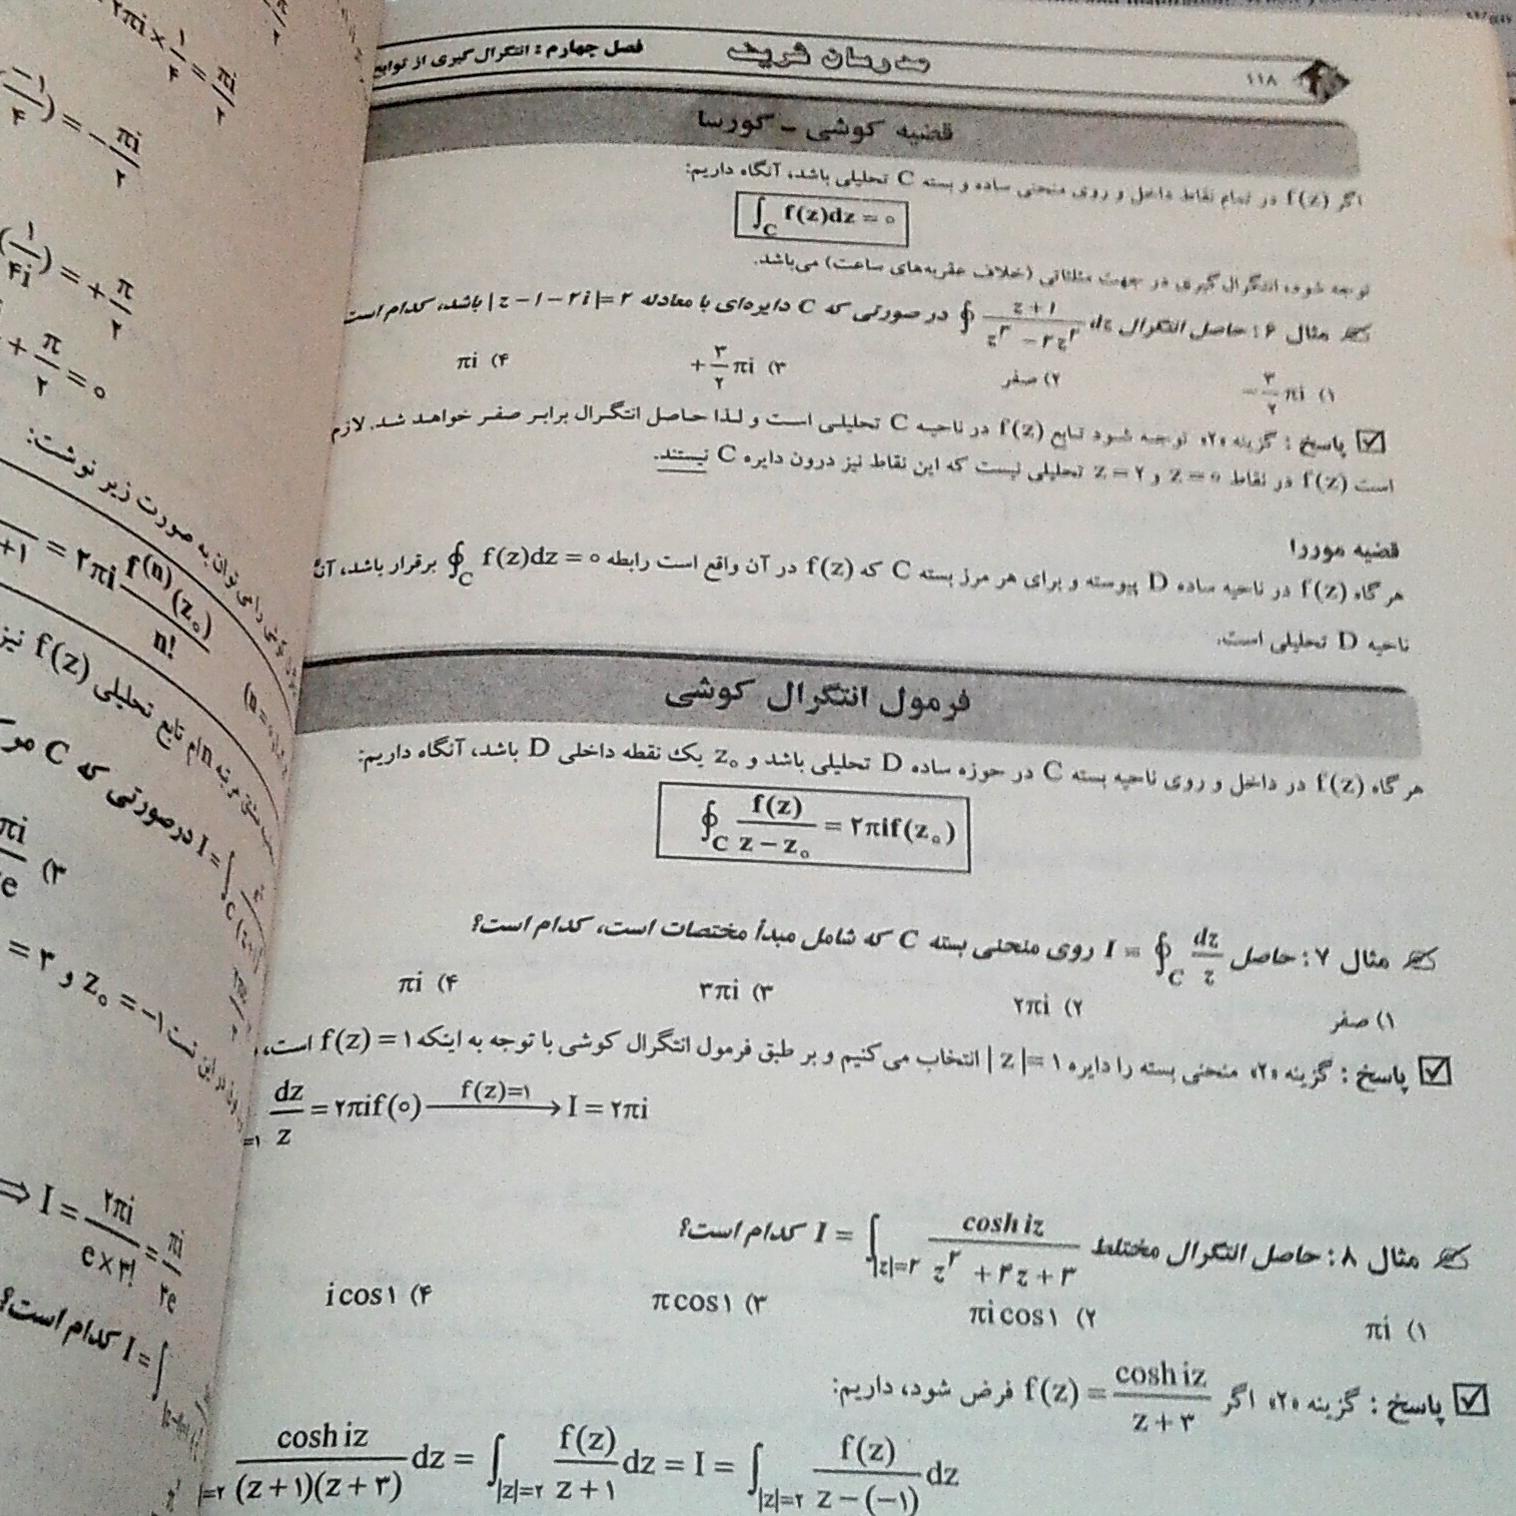 ۱۱۸
مدرسان شریف
فصل چهارم : انتگرال‌گیری از توابع
قضیه کوشی - گورسا
اگر f(z) در تمام نقاط داخل و روی منحنی ساده و بسته C تحلیلی باشد، آنگاه داریم:
∫_C f(z)dz = ۰
توجه شود، انتگرال‌گیری در جهت مثلثاتی (خلاف عقربه‌های ساعت) می‌باشد.
مثال ۶ : حاصل انتگرال ∮ (z+۱)/(z^۳ −۲z^۲) dz در صورتی که C دایره‌ای با معادله |z−۱−۲i|=۲ باشد، کدام است
۱) −۳/۲ πi ۲) صفر ۳) +۳/۲ πi ۴) πi
پاسخ : گزینه «۲» توجه شود تابع f(z) در ناحیه C تحلیلی است و لذا حاصل انتگرال برابر صفر خواهد شد. لازم
است f(z) در نقاط z=۰ و z=۲ تحلیلی نیست که این نقاط نیز درون دایره C نیستند.
قضیه موررا
هر گاه f(z) در ناحیه ساده D پیوسته و برای هر مرز بسته C که f(z) در آن واقع است رابطه ∮_C f(z)dz = ۰ برقرار باشد،
ناحیه D تحلیلی است.
فرمول انتگرال کوشی
هر گاه f(z) در داخل و روی ناحیه بسته C در حوزه ساده D تحلیلی باشد و z۰ یک نقطه داخلی D باشد، آنگاه داریم:
∮_C f(z)/(z−z۰) = ۲πif(z۰)
مثال ۷ : حاصل I = ∮_C dz/z روی منحنی بسته C که شامل مبدأ مختصات است، کدام است؟
۱) صفر ۲) ۲πi ۳) ۳πi ۴) πi
پاسخ : گزینه «۲» منحنی بسته را دایره |z|=۱ انتخاب می‌کنیم و بر طبق فرمول انتگرال کوشی با توجه به اینکه f(z)=۱ است،
dz/z = ۲πif(۰) —f(z)=۱→ I = ۲πi
مثال ۸ : حاصل انتگرال مختلط I = ∫_|z|=۲ cosh iz/(z^۲ +۴z+۳) کدام است؟
۱) πi ۲) πi cos۱ ۳) π cos۱ ۴) i cos۱
پاسخ : گزینه «۲» اگر f(z) = cosh iz/(z+۳) فرض شود، داریم:
=۲ cosh iz/((z+۱)(z+۳)) dz = ∫_|z|=۲ f(z)/(z+۱) dz = I = ∫_|z|=۲ f(z)/(z−(−۱)) dz
۲πi × ۱/۴ = πi/۲
= −πi/۲
(۱/۴i) = +π/۲
+ π/۲ = ۰
توان به صورت زیر نوشت:
= ۲πi f^(n)(z۰)/n!
تابع تحلیلی f(z) نیز
در صورتی که C
z۰ = −۱ و ۳ =
⇒ I = ۲πi/(e×۳!) = πi/۳e
I = ∫ کدام است؟